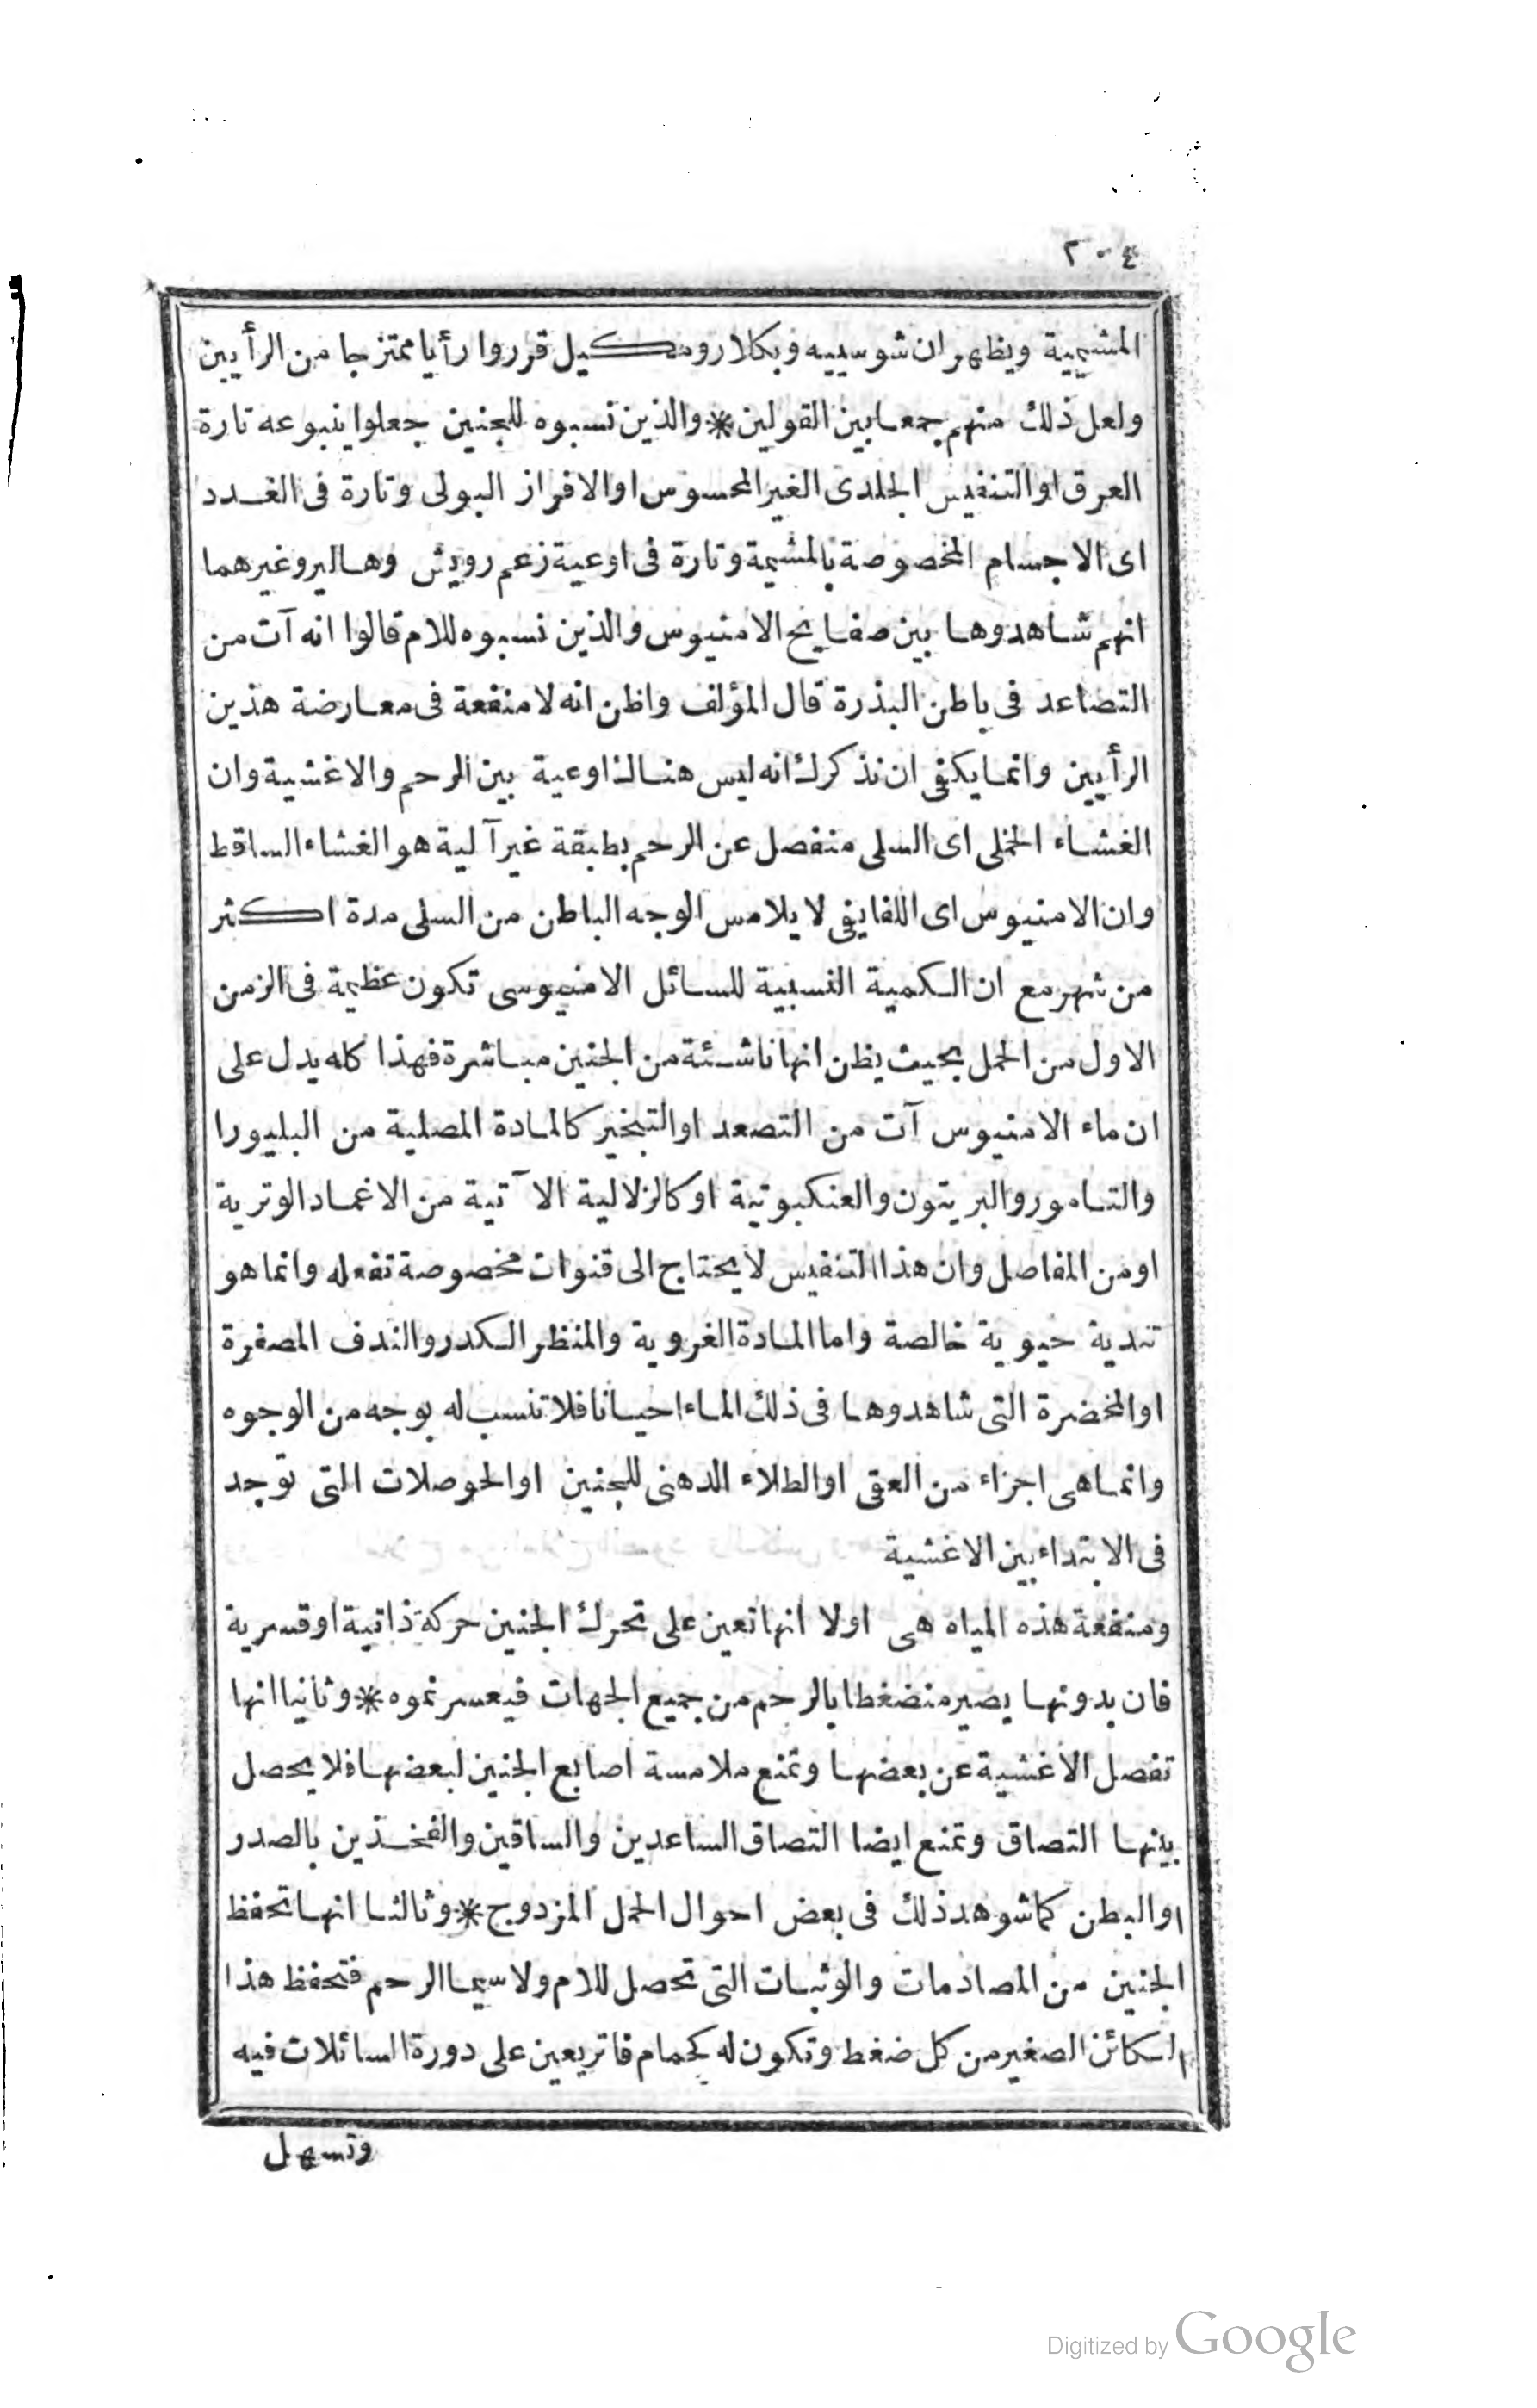 ٢٠٤
المشيمية ويظهر ان شوسييه وبكلارومكيل قرروا رأيا ممتزجا من الرأيين
ولعل ذلك منهم جمعا بين القولين * والذين نسبوه للجنين جعلوا ينبوعه تارة
العرق او التنفيس الجلدى الغير المحسوس او الافراز البولى وتارة فى الغدد
اى الاجسام المخصوصة بالمشيمة وتارة فى اوعية زعم رويش وهالير وغيرهما
انهم شاهدوها بين صفايح الامنيوس والذين نسبوه للام قالوا انه آت من
التصاعد فى باطن البذرة قال المؤلف واظن انه لا منفعة فى معارضة هذين
الرأيين وانما يكفى ان نذكرك انه ليس هناك اوعية بين الرحم والاغشية وان
الغشاء الخملى اى السلى منفصل عن الرحم بطبقة غير آلية هو الغشاء الساقط
وان الامنيوس اى اللفايفى لا يلامس الوجه الباطن من السلى مدة اكثر
من شهر مع ان الكمية النسبية للسائل الامنيوسى تكون عظيمة فى الزمن
الاول من الحمل بحيث يظن انها ناشئة من الجنين مباشرة فهذا كله يدل على
ان ماء الامنيوس آت من التصعد او التبخير كالمادة المصلية من البليورا
والتامور والبريتون والعنكبوتية او كالزلالية الآتية من الاغماد الوترية
او من المفاصل وان هذا التنفيس لا يحتاج الى قنوات مخصوصة تفعله وانما هو
تندية حيوية خالصة واما المادة الغروية والمنظر الكدر والندف المصفرة
او المخضرة التى شاهدوها فى ذلك الماء احيانا فلا تنسب له بوجه من الوجوه
وانما هى اجزاء من العقى او الطلاء الدهنى للجنين او الحوصلات التى توجد
فى الابتداء بين الاغشية
ومنفعة هذه المياه هى اولا انها تعين على تحرك الجنين حركة ذاتية او قسرية
فان بدونها يصير منضغطا بالرحم من جميع الجهات فيعسر نموه * وثانيا انها
تفصل الاغشية عن بعضها وتمنع ملامسة اصابع الجنين لبعضها فلا يحصل
بينها التصاق وتمنع ايضا التصاق الساعدين والساقين والفخذين بالصدر
او البطن كما شوهد ذلك فى بعض احوال الحمل المزدوج * وثالثا انها تحفظ
الجنين من المصادمات والوثبات التى تحصل للام ولا سيما الرحم فتحفظ هذا
الكائن الصغير من كل ضغط وتكون له كحمام فاتر يعين على دورة السائلات فيه
وتسهل
Digitized by Google